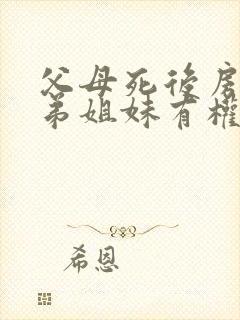 父母死後房
弟姐妹有權
希恩